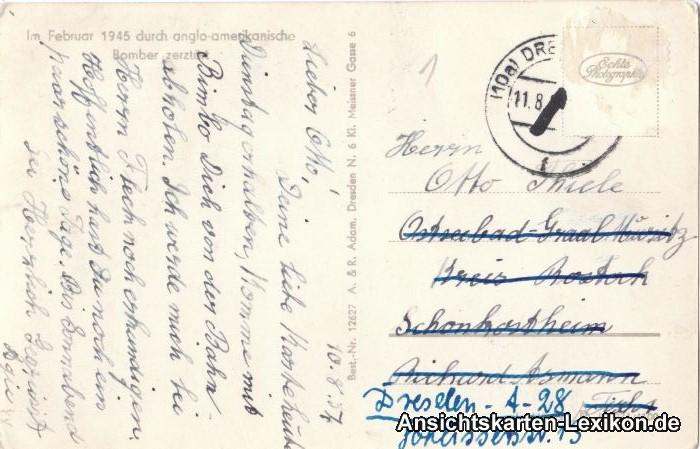 Im Februar 1945 durch anglo-amerikanische
Bomber zerstö
10. 8. 54
Lieber Otto,
Deine liebe Karte heute
Dienstag erhalten, komme mit
Bimbo Dich von der Bahn
abholen. Ich werde mich bei
Herrn noch erkundigen.
Hoffentlich hast Du noch ein
paar schöne Tage. Bis Sonnabend
sei Herzlich
Best.-Nr. 12627 A. & R. Adam, Dresden N. 6 Kl. Meissner Gasse 6
1
(10a) DRE
11.8.
f
Echte
Photographie
Herrn
Otto Thiele
Ostseebad-Graal-Müritz
Kreis Rostock
Schonkostheim
Richard Assmann
Dresden-A-28
Ansichtskarten-Lexikon.de